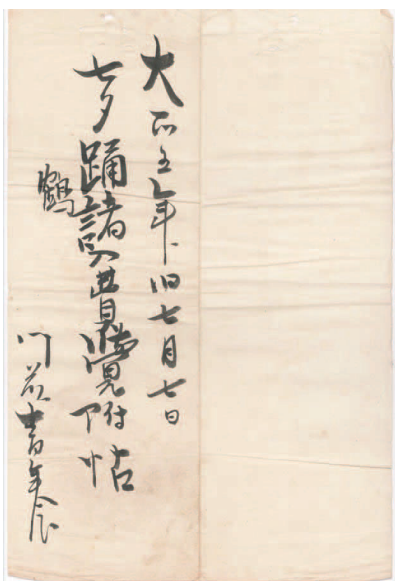 大正五年旧七月七日
七夕踊諸入費覚附帖
鶴
門前青年会